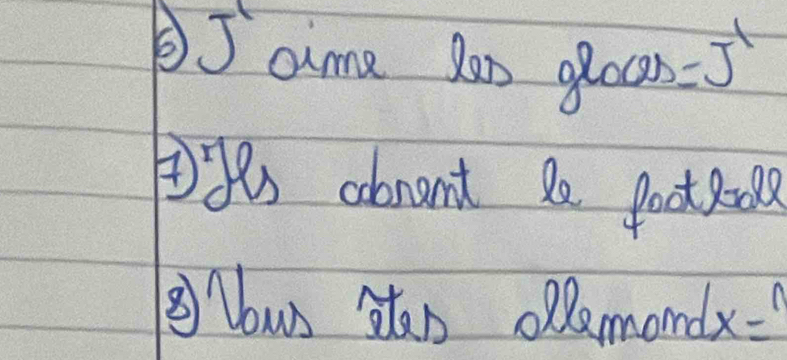 6) J'aime les glaces = J'
7) Ils adorent le football
8) Vous êtes allemandx =